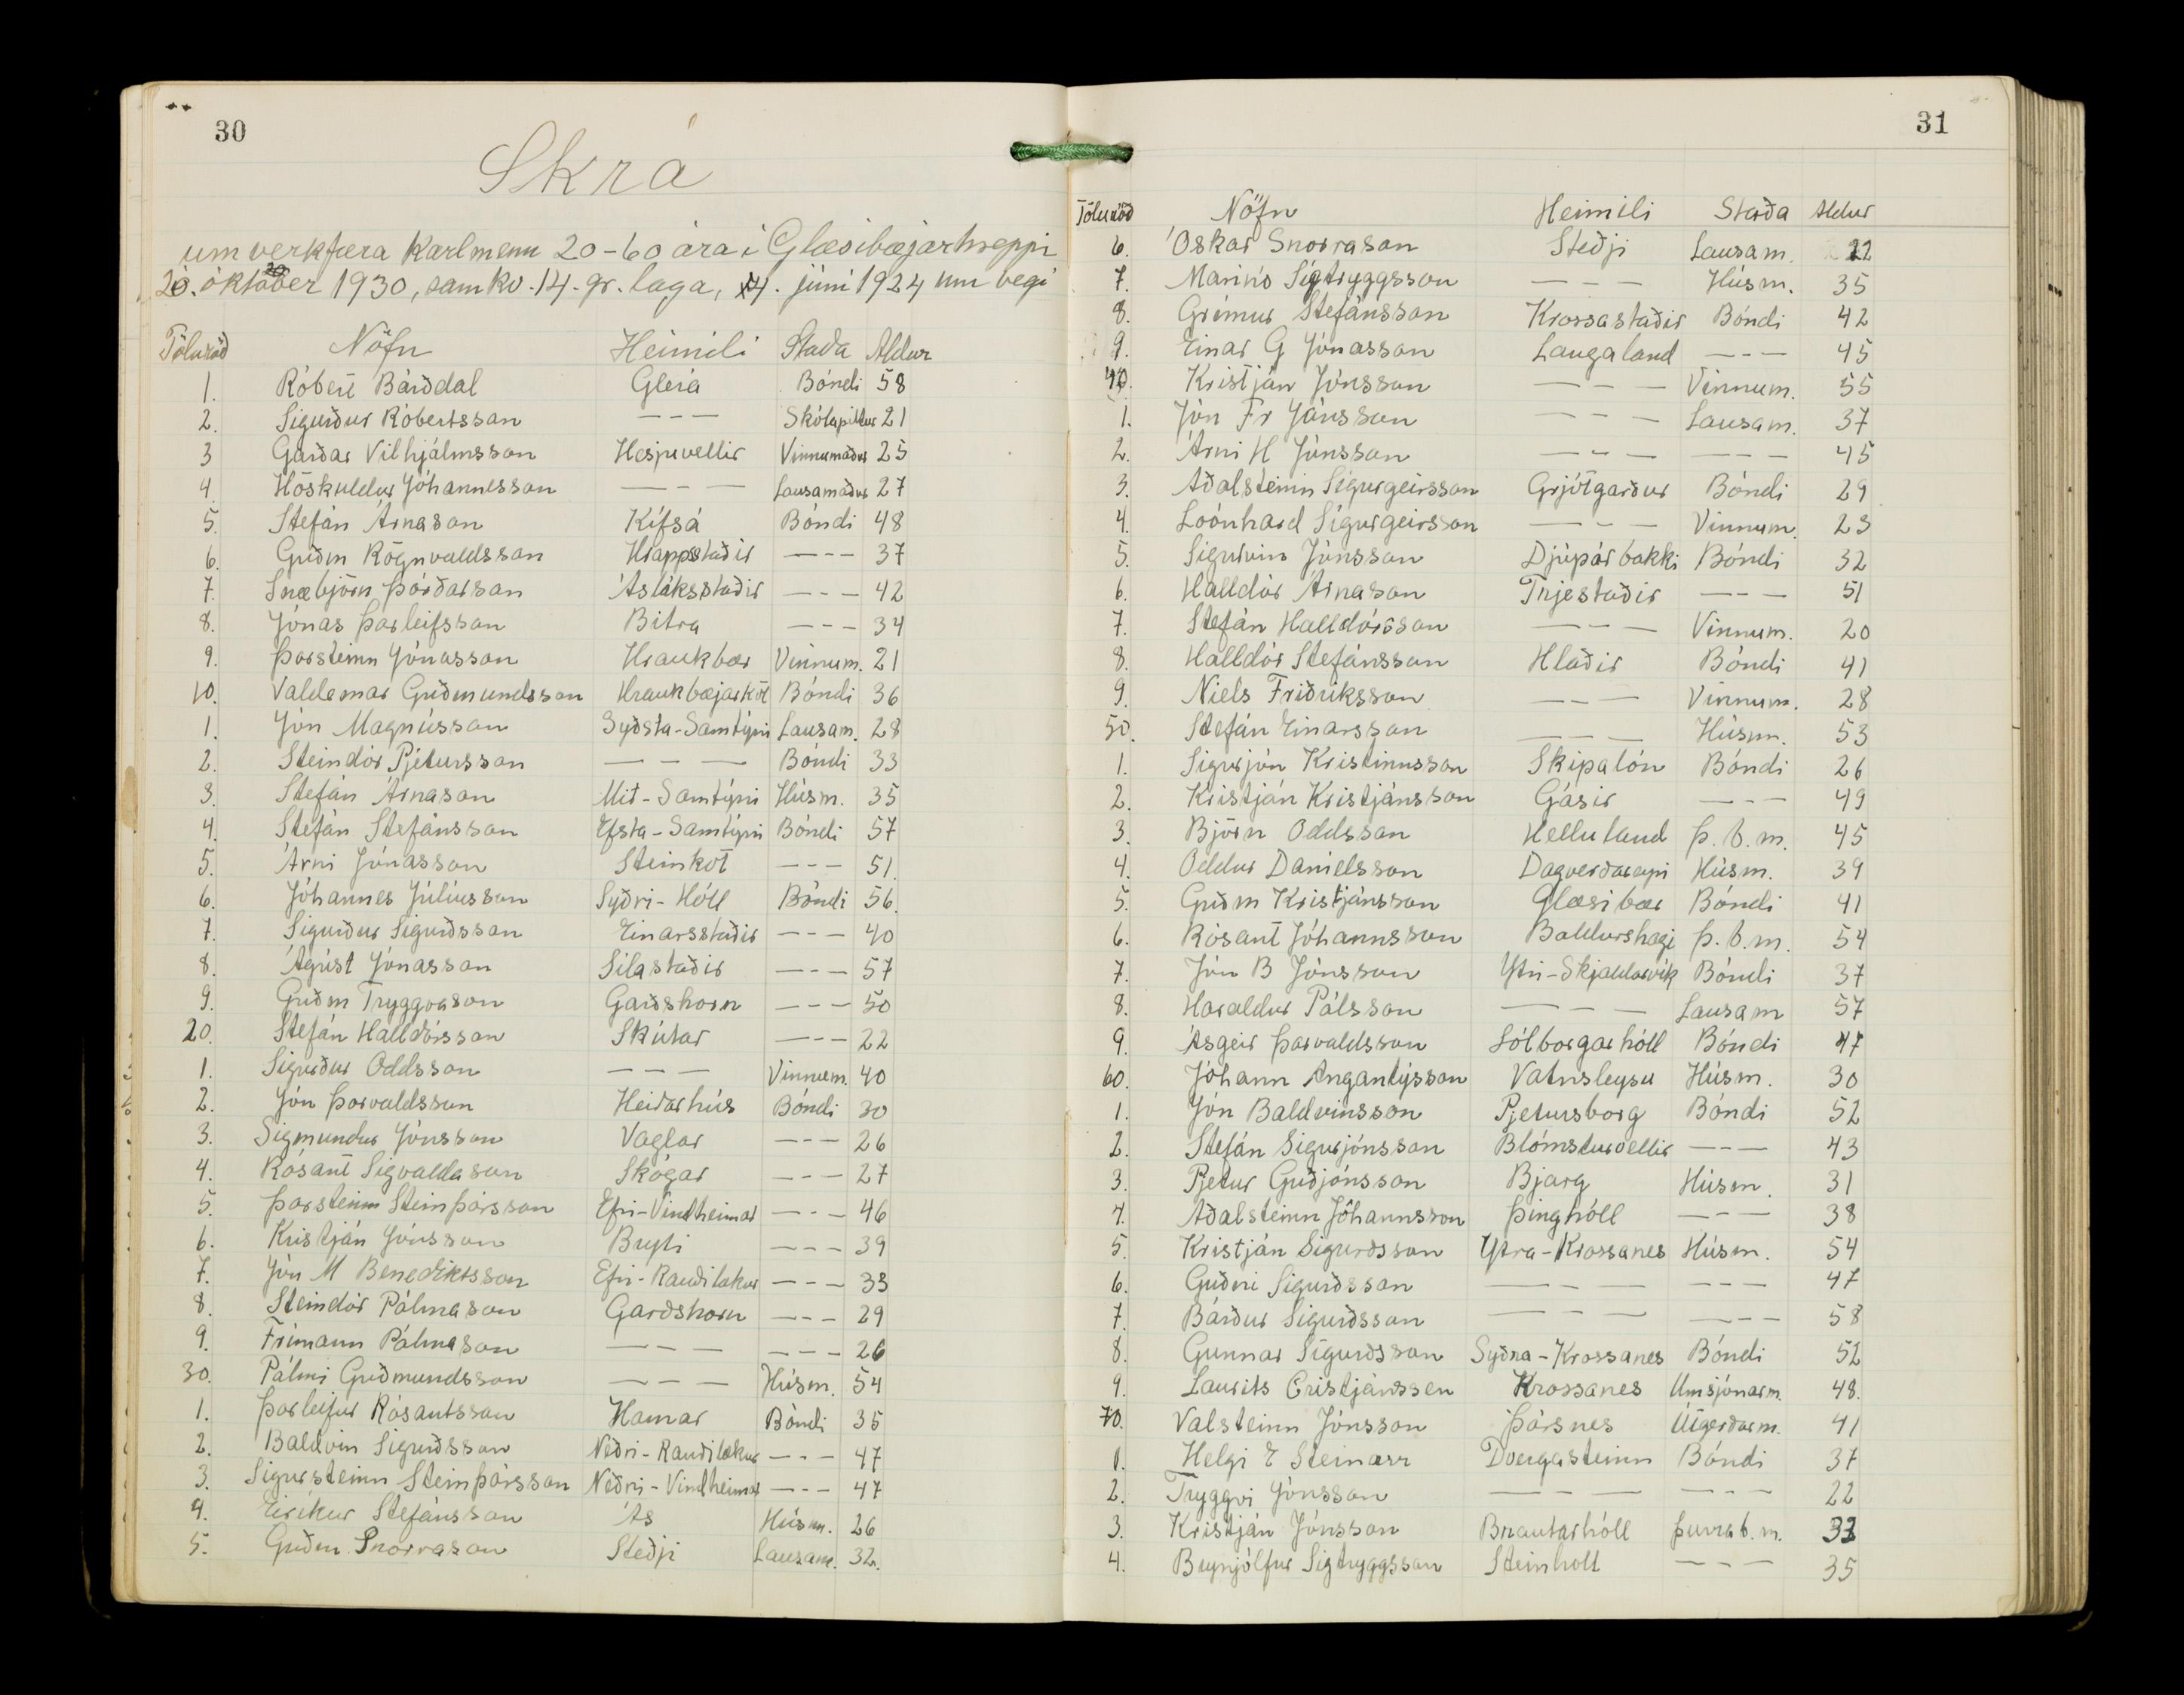 30
Skrá
um verkfæra karlmenn 20-60 ára í Glæsibæjarhreppi
20. október 1930, sam kv. 14. gr. laga, 4. júní 1924 um vegi
Töluröð Nöfn Heimili Staða Aldur
1. Róbert Bárðdal Glerá Bóndi 58
2. Sigurður Róbertsson --- Skólapiltur 21
3 Garðar Vilhjálmsson Hesjuvellir Vinnumaður 25
4 Höskuldur Jóhannesson --- Lausamaður 27
5. Stefán Árnason Kífsá Bóndi 48
6. Guðm Rögnvaldsson Hrappstaðir --- 37
7. Snæbjörn Þórðarson Ásláksstaðir --- 42
8. Jónas Þorleifsson Bitra --- 34
9. Þorsteinn Jónasson Hraukbær Vinnum. 21
10. Valdemar Guðmundsson Hraukbæjarkot Bóndi 36
1. Jón Magnússon Syðsta-Samtýni Lausam. 28
2. Steindór Pjetursson --- Bóndi 33
3. Stefán Árnason Mið-Samtýni Húsm. 35
4. Stefán Stefánsson Efsta-Samtýni Bóndi 57
5. Árni Jónasson Steinkot --- 51.
6. Jóhannes Júlíusson Syðri-Hóll Bóndi 56.
7. Sigurður Sigurðsson Einarsstaðir --- 40
8. Ágúst Jónasson Sílastaðir --- 57
9. Guðm Tryggvason Garðshorn --- 50
20. Stefán Halldórsson Skútar --- 22
1. Sigurður Oddsson --- Vinnum. 40
2. Jón Þorvaldsson Heiðarhús Bóndi 30
3. Sigmundur Jónsson Vaglar --- 26
4. Rósant Sigvaldason Skógar --- 27
5. Þorsteinn Steinþórsson Efri-Vindheimar --- 46
6. Kristján Jónsson Bryti --- 39
7. Jón M Benediktsson Efri-Rauðilækur --- 33
8. Steindór Pálmason Garðshorn --- 29
9. Frímann Pálmason --- --- 26
30. Pálmi Guðmundsson --- Húsm. 54
1. Þorleifur Rósantsson Hamar Bóndi 35
2. Baldvin Sigurðsson Neðri-Rauðilækur --- 47
3. Sigursteinn Steinþórsson Neðri-Vindheimar --- 47
4. Eiríkur Stefánsson Ás Húsm. 26
5. Guðm. Snorrason Steðji Lausam. 32.
31
Töluröð Nöfn Heimili Staða Aldur
6. Óskar Snorrason Steðji Lausam. 22
7. Marinó Sigtryggsson --- Húsm. 35
8. Grímur Stefánsson Krossastaðir Bóndi 42
9. Einar G Jónasson Laugaland --- 45
40. Kristján Jónsson --- Vinnum. 55
1. Jón Fr Jónsson --- Lausam. 37
2. Árni H Jónsson --- --- 45
3. Aðalsteinn Sigurgeirsson Grjótgarður Bóndi 29
4. Loónhard Sigurgeirsson --- Vinnum. 23
5. Sigurvin Jónsson Djúpárbakki Bóndi 32
6. Halldór Árnason Trjestaðir --- 51
7. Stefán Halldórsson --- Vinnum. 20
8. Halldór Stefánsson Hlaðir Bóndi 41
9. Niels Friðriksson --- Vinnum. 28
50. Stefán Einarsson --- Húsm. 53
1. Sigurjón Kristinnsson Skipalón Bóndi 26
2. Kristján Kristjánsson Gásir --- 49
3. Björn Oddsson Helluland Þ.b.m. 45
4. Oddur Daníelsson Dagverðareyri Húsm. 39
5. Guðm Kristjánsson Glæsibær Bóndi 41
6. Rósant Jóhannsson Baldurshagi Þ.b.m. 54
7. Jón B Jónsson Ytri-Skjaldarvík Bóndi 37
8. Haraldur Pálsson --- Lausam 57
9. Ásgeir Þorvaldsson Sólborgarhóll Bóndi 47
60. Jóhann Angantýsson Vatnsleysu Húsm. 30
1. Jón Baldvinsson Pjetursborg Bóndi 52
2. Stefán Sigurjónsson Blómsturvellir --- 43
3. Pjetur Guðjónsson Bjarg Húsm. 31
4. Aðalsteinn Jóhannsson Þinghóll --- 38
5. Kristján Sigurðsson Ytra-Krossanes Húsm. 54
6. Guðni Sigurðsson --- --- 47
7. Bárður Sigurðsson --- --- 58
8. Gunnar Sigurðsson Syðra-Krossanes Bóndi 52
9. Laurits Cristjánssen Krossanes Umsjónarm. 48.
70. Valsteinn Jónsson Þórsnes Útgerðarm. 41
1. Helgi E Steinarr Dvergasteinn Bóndi 37
2. Tryggvi Jónsson --- --- 22
3. Kristján Jónsson Brautarhóll Þurrab.m. 32
4. Brynjólfur Sigtryggsson Steinholt --- 35